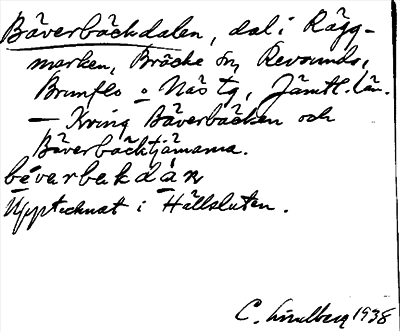 Bäverbäckdalen, dal i Rägg-
marken, Bräcke sn, Revsunds,
Brunflo o Näs tg, Jämtl. län.
— Kring Bäverbäcken och
Bäverbäcktjärnarna.
bévarbakdàn
Upptecknat i Hällsluten.
C. Lindberg 1938